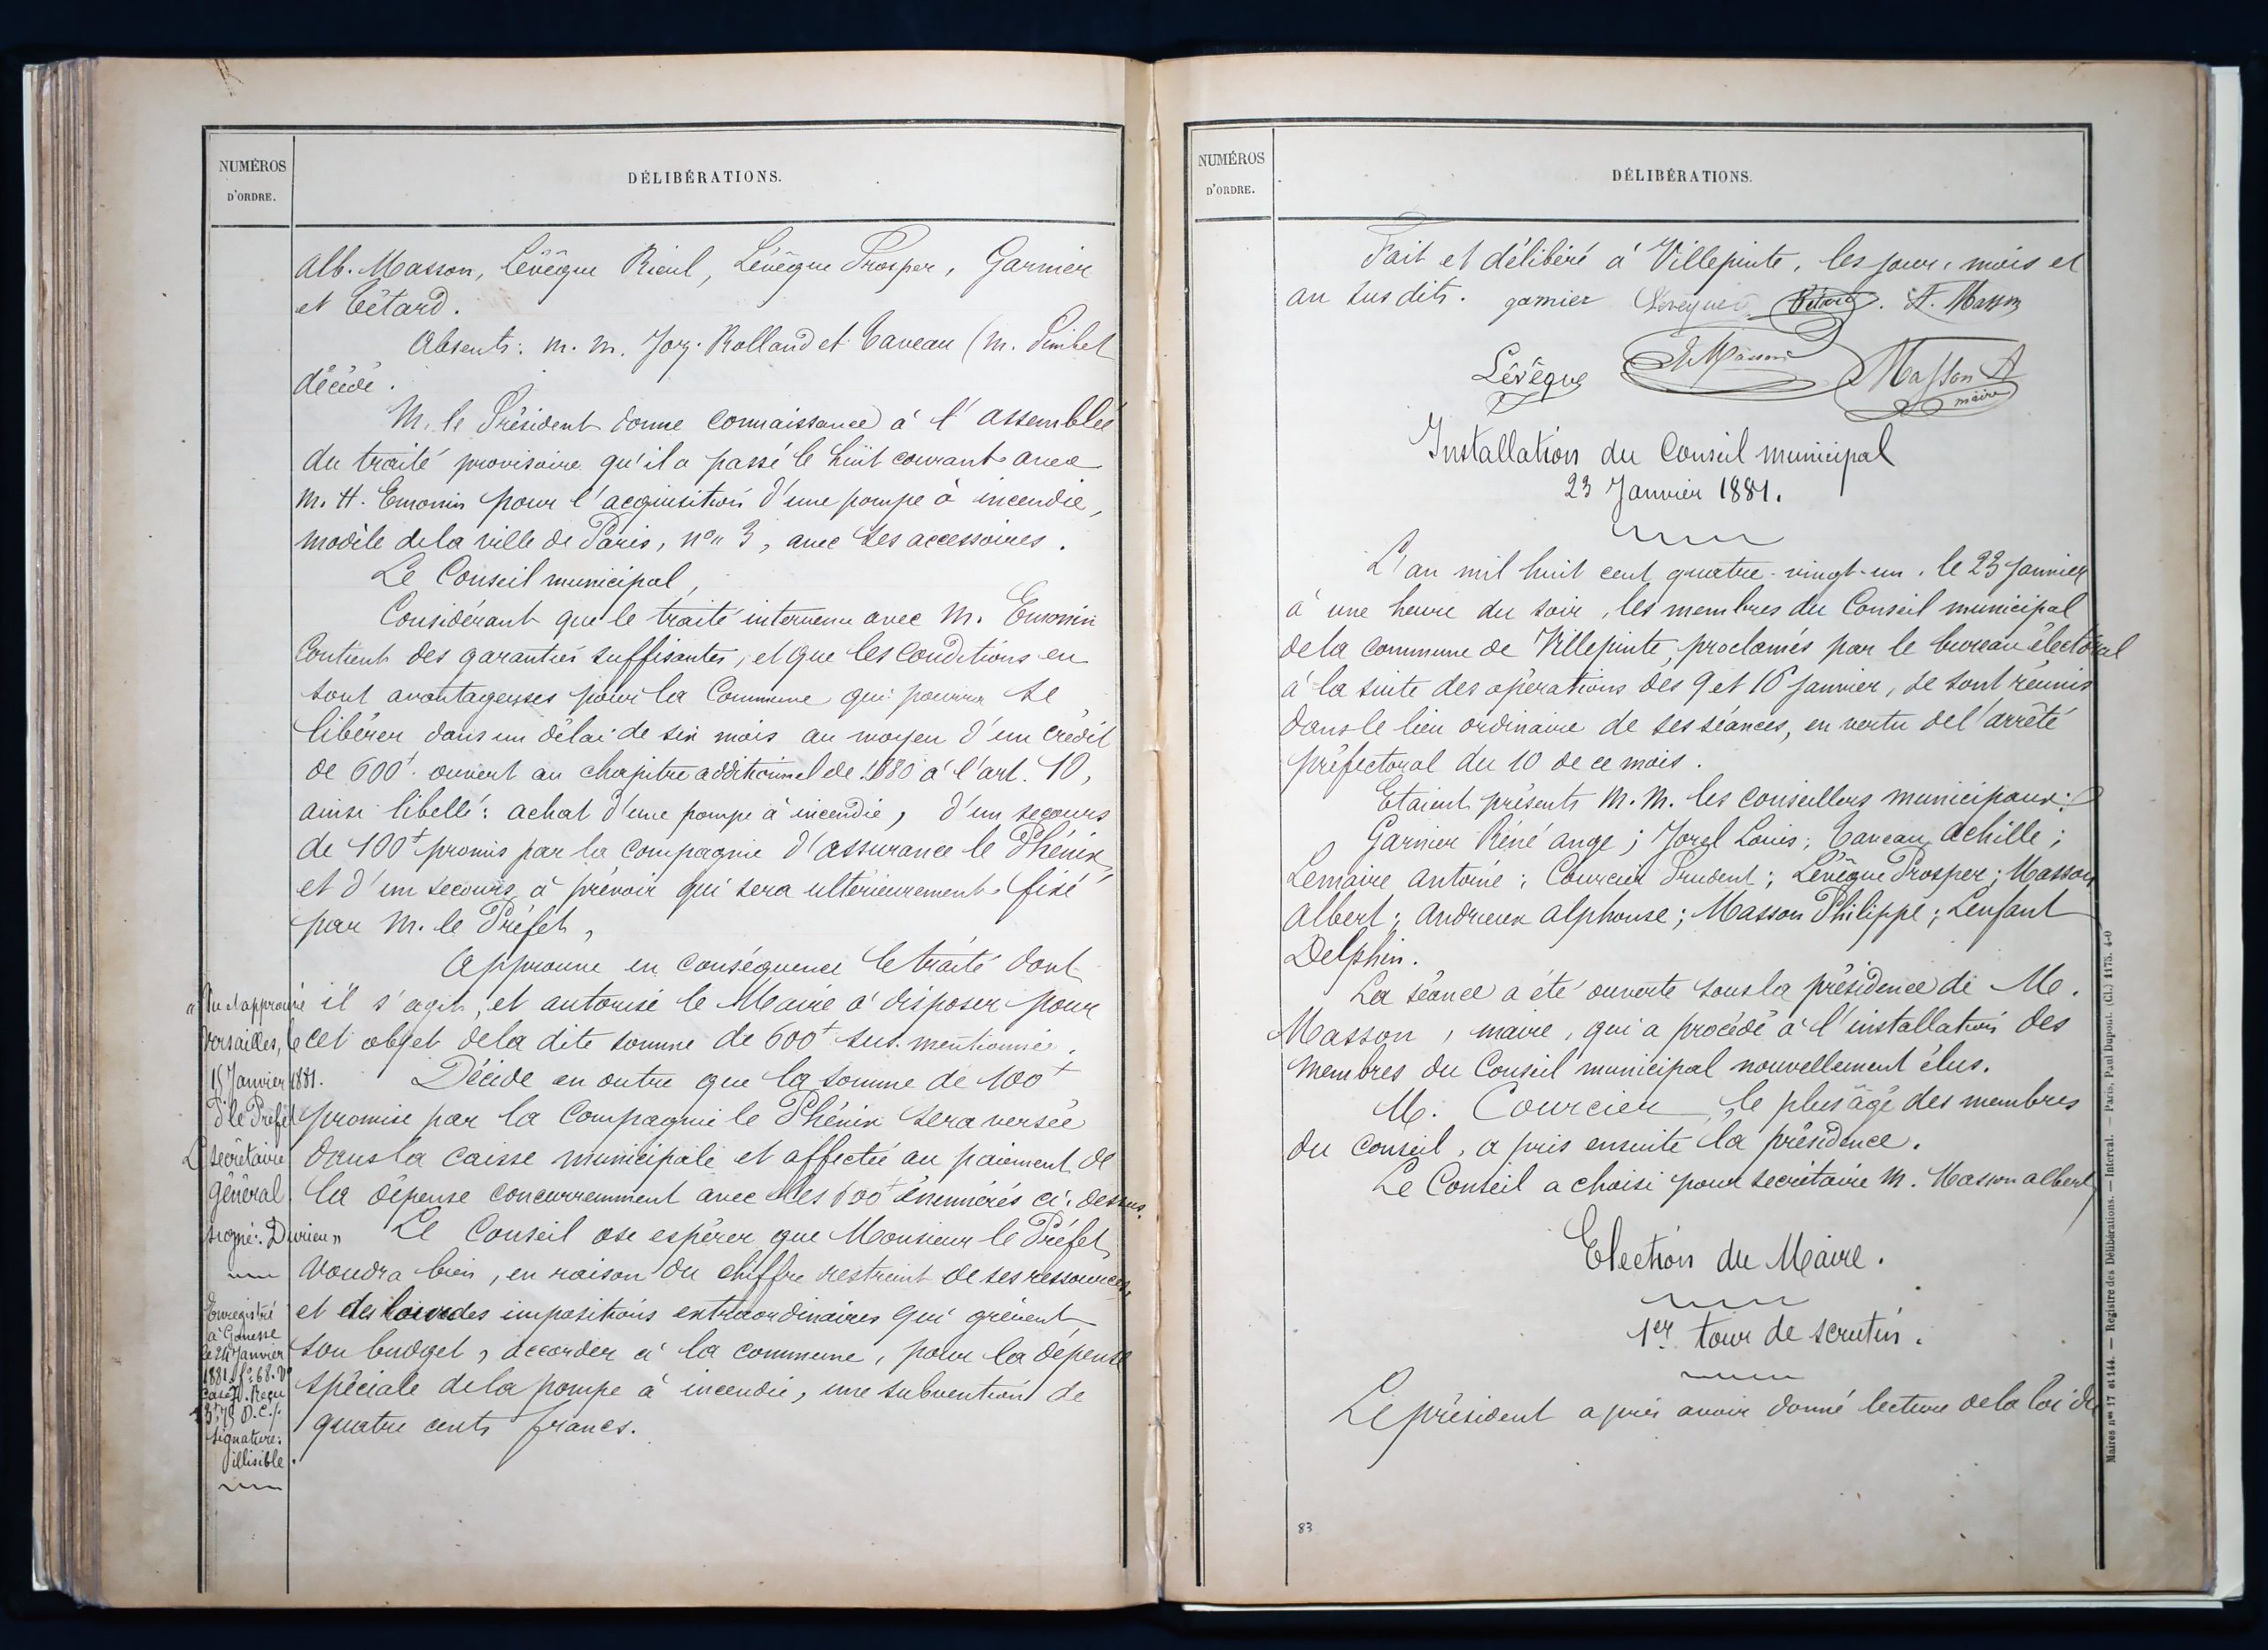 NUMÉROS
D'ORDRE.
DÉLIBÉRATIONS.
Alb. Masson, Lévêque Rieul, Lévêque Prosper, Garnier
et Bétard.
Absents: m. m. Rolland et Caveau (M. Pimbet
décédé.
M. le Président donne connaissance à l'assemblée
du traité provisoire qu'il a passé le huit courant avec
M. H. Emonin pour l'acquisition d'une pompe à incendie,
modèle de la ville de Paris, n° 3, avec ses accessoires.
Le Conseil municipal,
Considérant que le traité intervenu avec M. Emonin
contient des garanties suffisantes, et que les conditions en
sont avantageuses pour la Commune qui pourra se
libérer dans un délai de six mois au moyen d'un crédit
de 600f. ouvert au chapitre additionnel de 1880 à l'art. 10,
ainsi libellé: achat d'une pompe à incendie, d'un secours
de 100f promis par la compagnie d'assurance le Phénix,
et d'un secours à prévoir qui sera ultérieurement fixé
par M. le Préfet,
Approuve en conséquence le traité dont
il s'agit, et autorise le Maire à disposer pour
cet objet de la dite somme de 600f sus-mentionnée.
Décide en outre que la somme de 100f
promise par la Compagnie le Phénix sera versée
dans la caisse municipale et affectée au paiement de
la dépense concurremment avec les 600f énumérés ci-dessus.
Le Conseil ose espérer que Monsieur le Préfet
voudra bien, en raison du chiffre restreint de ses ressources,
et des lourdes impositions extraordinaires qui grèvent
son budget, accorder à la commune, pour la dépense
spéciale de la pompe à incendie, une subvention de
quatre cents francs.
"Vu et approuvé
Versailles, le
15 Janvier 1881.
P. le Préfet
Le Secrétaire
général
signé: Durieu"
Enregistré
à Gonesse
le 24 Janvier
1881. f° 68. V°
case 7. Reçu
3f75 D.C./.
Signature:
illisible.
NUMÉROS
D'ORDRE.
DÉLIBÉRATIONS.
Fait et délibéré à Villepinte, les jour, mois et
an sus dits. garnier Lévêque Bétard. A. Masson
Lévêque Masson Masson A
maire
Installation du Conseil municipal
23 Janvier 1881.
L'an mil huit cent quatre-vingt-un, le 23 Janvier
à une heure du soir, les membres du Conseil municipal
de la commune de Villepinte, proclamés par le bureau électoral
à la suite des opérations des 9 et 16 janvier, se sont réunis
dans le lieu ordinaire de ses séances, en vertu de l'arrêté
préfectoral du 10 de ce mois.
Etaient présents M. M. les conseillers municipaux:
Garnier Réné ange; Jorel Louis; Caveau achille;
Lemaire Antoine; Courcier Prudent; Lévêque Prosper; Masson
Albert; Andrieux alphonse; Masson Philippe; Lenfant
Delphin.
La séance a été ouverte sous la présidence de M.
Masson, maire, qui a procédé à l'installation des
membres du Conseil municipal nouvellement élus.
M. Courcier, le plus âgé des membres
du conseil, a pris ensuite la présidence.
Le Conseil a choisi pour secrétaire M. Masson albert
Election du Maire.
1er tour de scrutin.
Le président après avoir donné lecture de la loi du
83
Maires nos 17 et 144. — Registre des Délibérations. — Intercal. — Paris, Paul Dupont. (Cl.) 1175. 4-0